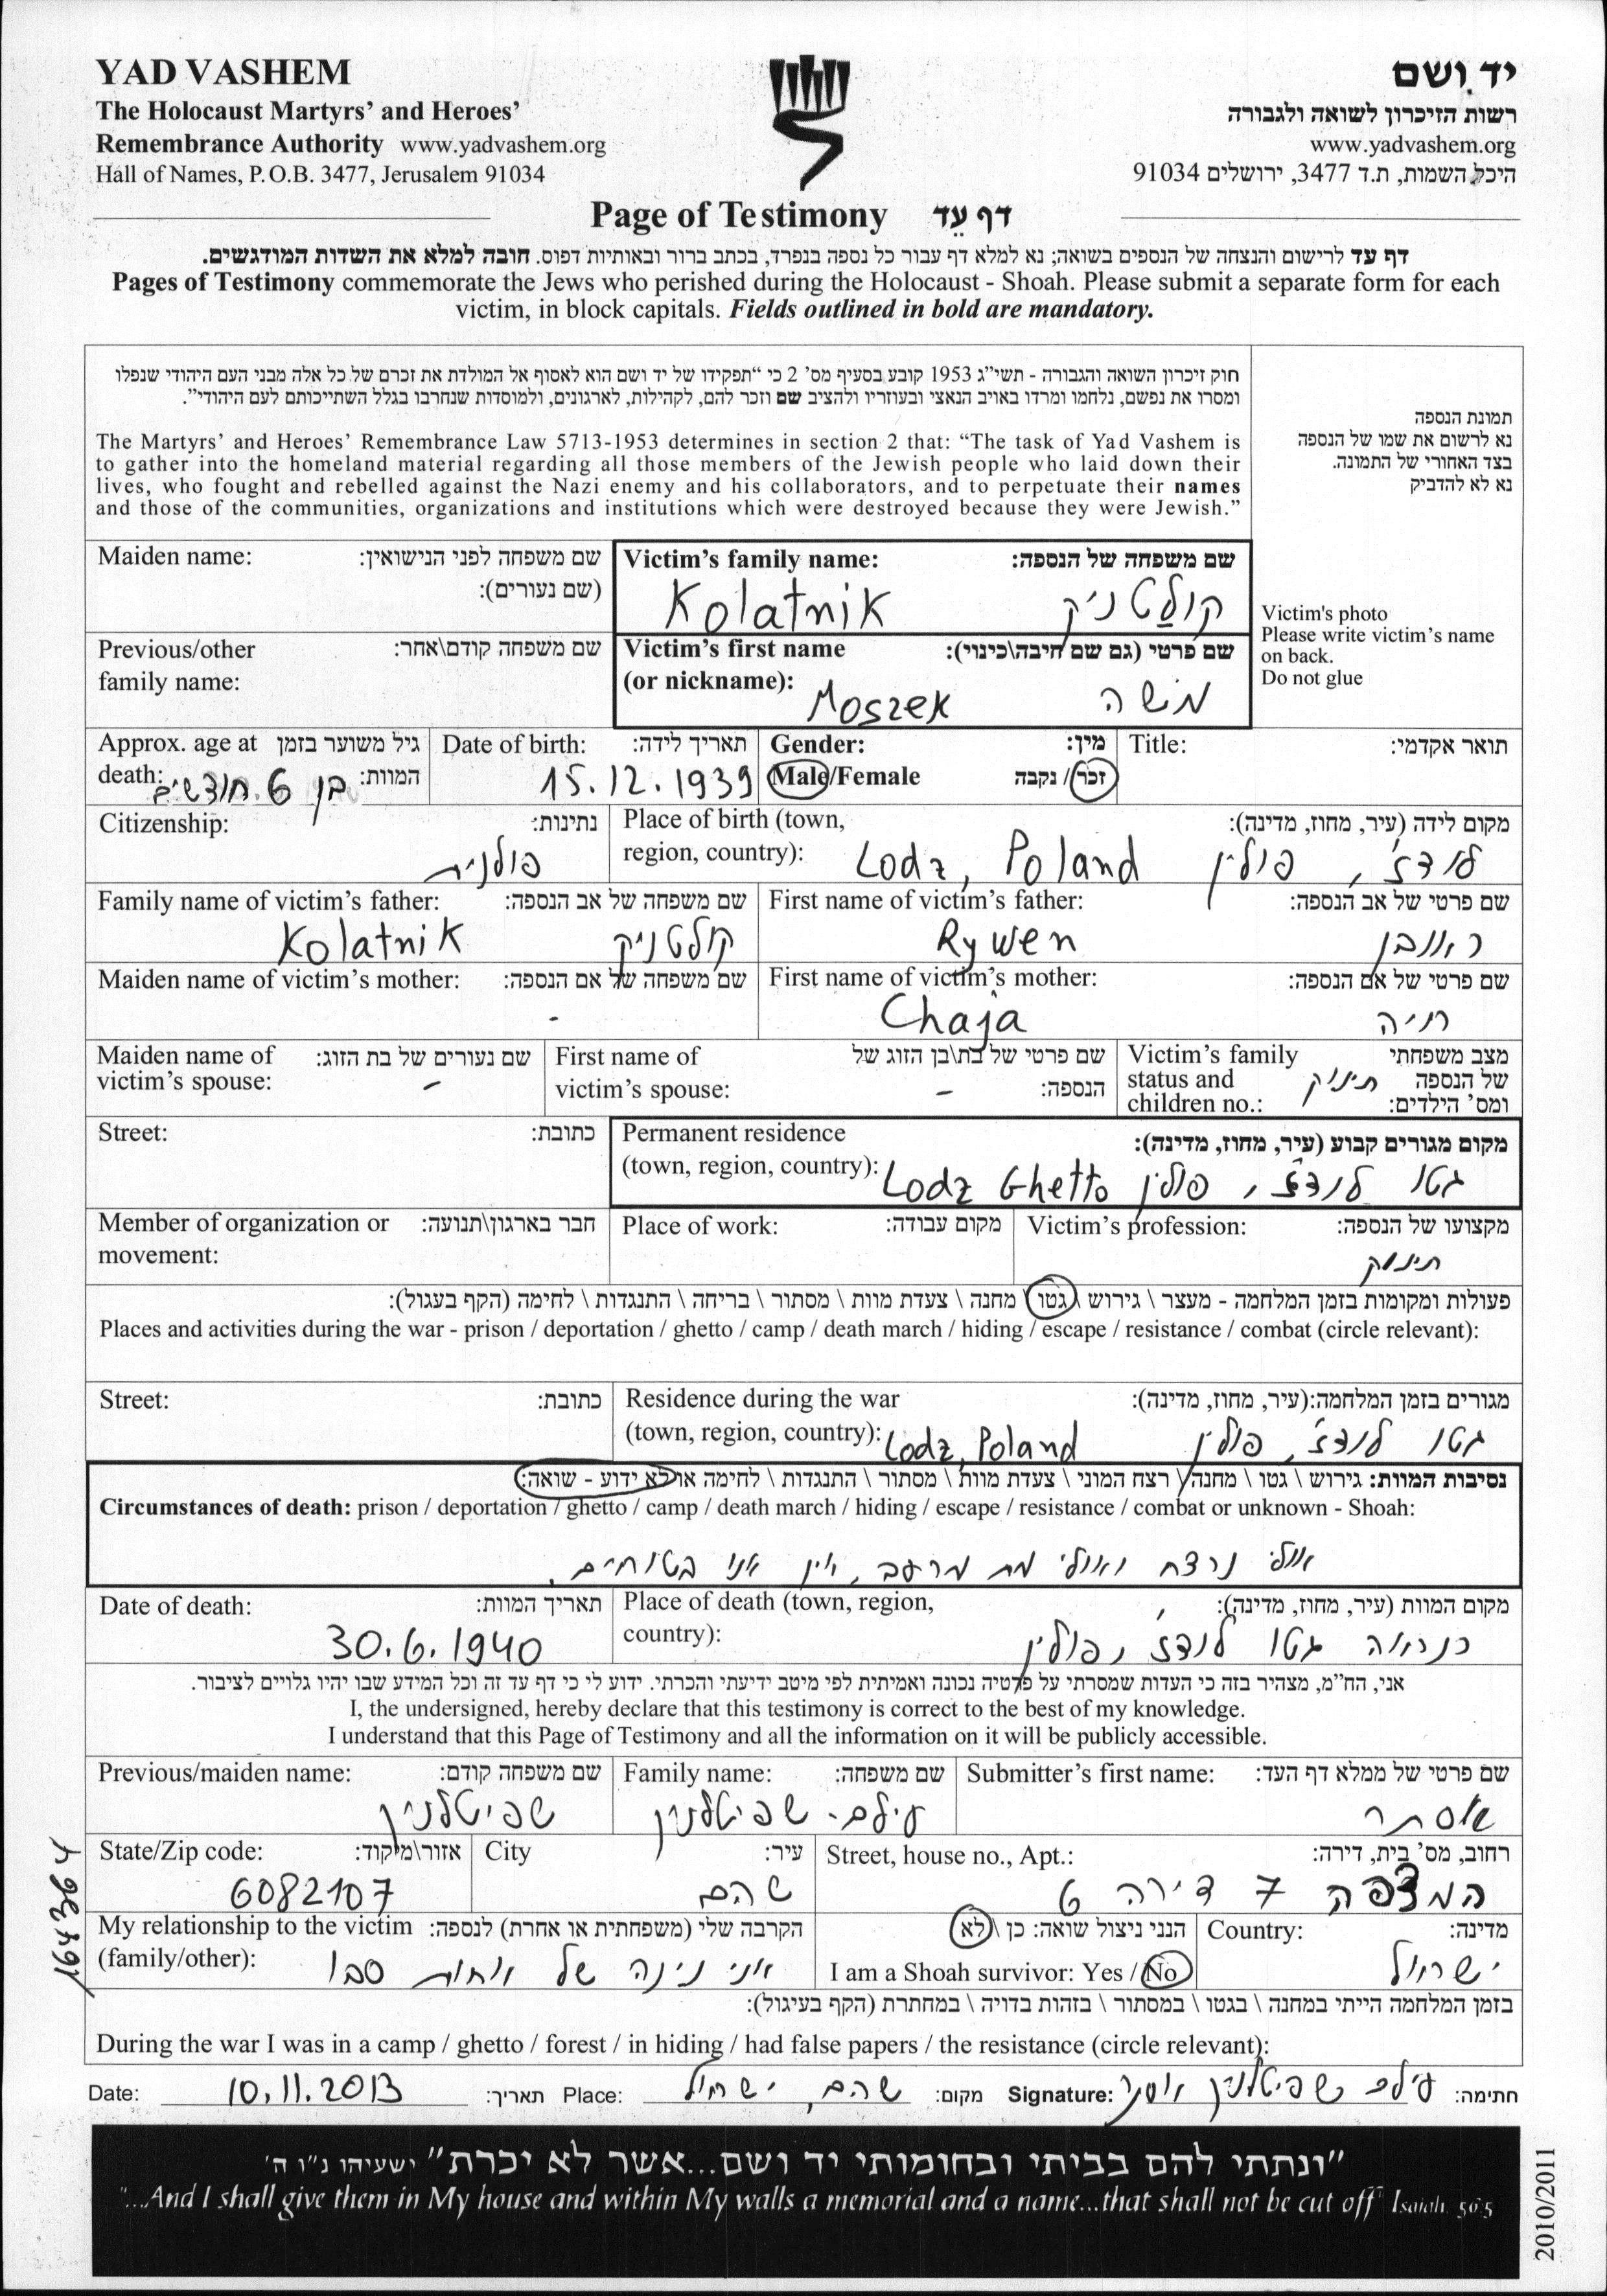 YAD VASHEM
יד ושם
The Holocaust Martyrs' and Heroes'
רשות הזיכרון לשואה ולגבורה
Remembrance Authority www.yadvashem.org
www.yadvashem.org
Hall of Names, P.O.B. 3477, Jerusalem 91034
היכל השמות, ת.ד 3477, ירושלים 91034
Page of Testimony דף עֵד
דף עד לרישום והנצחה של הנספים בשואה; נא למלא דף עבור כל נספה בנפרד, בכתב ברור ובאותיות דפוס. חובה למלא את השדות המודגשים.
Pages of Testimony commemorate the Jews who perished during the Holocaust - Shoah. Please submit a separate form for each
victim, in block capitals. Fields outlined in bold are mandatory.
חוק זיכרון השואה והגבורה - תשי"ג 1953 קובע בסעיף מס' 2 כי "תפקידו של יד ושם הוא לאסוף אל המולדת את זכרם של כל אלה מבני העם היהודי שנפלו
ומסרו את נפשם, נלחמו ומרדו באויב הנאצי ובעוזריו ולהציב שם וזכר להם, לקהילות, לארגונים, ולמוסדות שנחרבו בגלל השתייכותם לעם היהודי".
The Martyrs' and Heroes' Remembrance Law 5713-1953 determines in section 2 that: "The task of Yad Vashem is
to gather into the homeland material regarding all those members of the Jewish people who laid down their
lives, who fought and rebelled against the Nazi enemy and his collaborators, and to perpetuate their names
and those of the communities, organizations and institutions which were destroyed because they were Jewish."
תמונת הנספה
נא לרשום את שמו של הנספה
בצד האחורי של התמונה.
נא לא להדביק
Victim's photo
Please write victim's name
on back.
Do not glue
Maiden name: שם משפחה לפני הנישואין:
(שם נעורים):
Victim's family name: שם משפחה של הנספה:
Kolatnik קולטניק
Previous/other שם משפחה קודם\אחר:
family name:
Victim's first name שם פרטי (גם שם חיבה\כינוי):
(or nickname): Moszek משה
Approx. age at גיל משוער בזמן
death: המוות: בן 6 חודשים
Date of birth: תאריך לידה:
15.12.1939
Gender: מין:
Male/Female זכר / נקבה
Title: תואר אקדמי:
Citizenship: נתינות:
פולנית
Place of birth (town, מקום לידה (עיר, מחוז, מדינה):
region, country): Lodz, Poland לודז', פולין
Family name of victim's father: שם משפחה של אב הנספה:
Kolatnik קולטניק
First name of victim's father: שם פרטי של אב הנספה:
Rywen ראובן
Maiden name of victim's mother: שם משפחה של אם הנספה:
-
First name of victim's mother: שם פרטי של אם הנספה:
Chaja חיה
Maiden name of שם נעורים של בת הזוג:
victim's spouse: -
First name of שם פרטי של בת\בן הזוג של
victim's spouse: - הנספה:
Victim's family מצב משפחתי
status and של הנספה תינוק
children no.: ומס' הילדים:
Street: כתובת:
Permanent residence מקום מגורים קבוע (עיר, מחוז, מדינה):
(town, region, country): Lodz Ghetto גטו לודז', פולין
Member of organization or חבר בארגון\תנועה:
movement:
Place of work: מקום עבודה:
Victim's profession: מקצועו של הנספה:
תינוק
פעולות ומקומות בזמן המלחמה - מעצר \ גירוש \ גטו \ מחנה \ צעדת מוות \ מסתור \ בריחה \ התנגדות \ לחימה (הקף בעגול):
Places and activities during the war - prison / deportation / ghetto / camp / death march / hiding / escape / resistance / combat (circle relevant):
Street: כתובת:
Residence during the war מגורים בזמן המלחמה:(עיר, מחוז, מדינה):
(town, region, country): Lodz, Poland גטו לודז', פולין
נסיבות המוות: גירוש \ גטו \ מחנה \ רצח המוני \ צעדת מוות \ מסתור \ התנגדות \ לחימה או לא ידוע - שואה:
Circumstances of death: prison / deportation / ghetto / camp / death march / hiding / escape / resistance / combat or unknown - Shoah:
אולי נרצח ואולי מת מרעב, אין אנו בטוחים.
Date of death: תאריך המוות:
30.6.1940
Place of death (town, region, מקום המוות (עיר, מחוז, מדינה):
country): כנראה גטו לודז', פולין
אני, הח"מ, מצהיר בזה כי העדות שמסרתי על פרטיה נכונה ואמיתית לפי מיטב ידיעתי והכרתי. ידוע לי כי דף עד זה וכל המידע שבו יהיו גלויים לציבור.
I, the undersigned, hereby declare that this testimony is correct to the best of my knowledge.
I understand that this Page of Testimony and all the information on it will be publicly accessible.
Previous/maiden name: שם משפחה קודם:
שפיטלניק
Family name: שם משפחה:
עילם - שפיטלניק
Submitter's first name: שם פרטי של ממלא דף העד:
אסתר
State/Zip code: אזור\מיקוד:
6082107
City עיר:
שהם
Street, house no., Apt.: רחוב, מס' בית, דירה:
המצפה 7 דירה 6
My relationship to the victim הקרבה שלי (משפחתית או אחרת) לנספה:
(family/other): אני נינה של אחות סבו
הנני ניצול שואה: כן \ לא
I am a Shoah survivor: Yes / No
Country: מדינה:
ישראל
בזמן המלחמה הייתי במחנה \ בגטו \ במסתור \ בזהות בדויה \ במחתרת (הקף בעיגול):
During the war I was in a camp / ghetto / forest / in hiding / had false papers / the resistance (circle relevant):
Date: 10.11.2013 תאריך: Place: שהם, ישראל מקום: Signature: עילם שפיטלניק אסתר חתימה:
"ונתתי להם בביתי ובחומותי יד ושם...אשר לא יכרת" ישעיהו נ"ו ה'
"...And I shall give them in My house and within My walls a memorial and a name...that shall not be cut off" Isaiah. 56:5
2010/2011